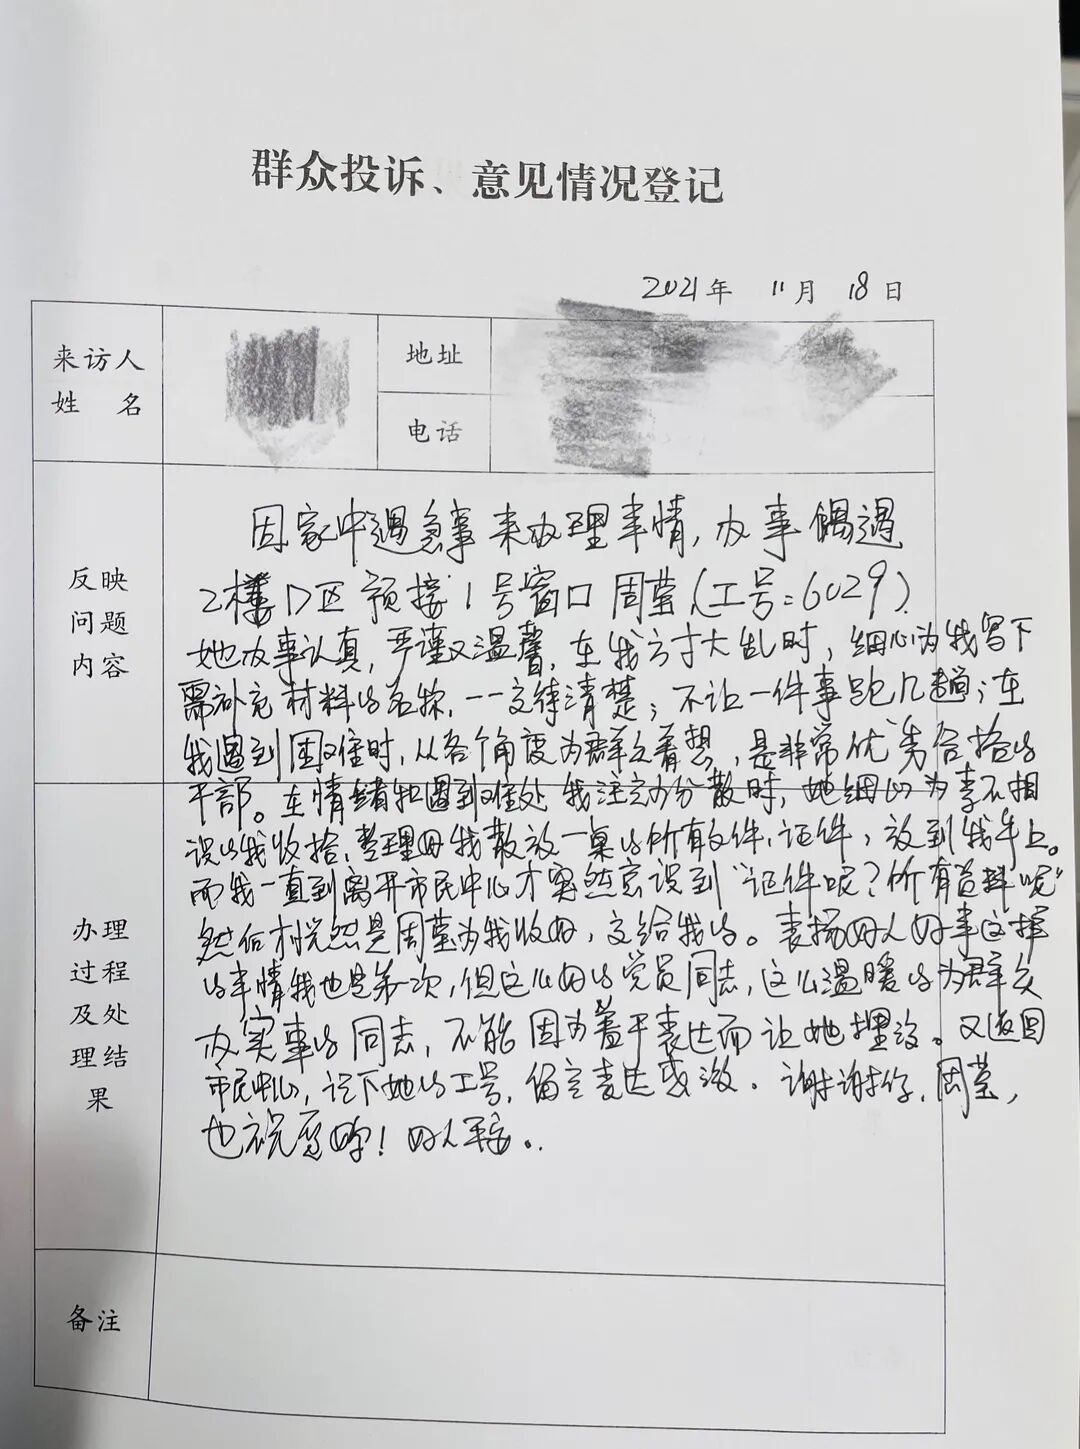 群众投诉、意见情况登记
2021年 11月 18日
来访人
姓 名
地址
电话
反映
问题
内容
因家中遇急事来办理事情,办事偶遇
2楼D区预接1号窗口周莹(工号:6029).
她办事认真,严谨又温馨,在我方寸大乱时,细心为我写下
需补充材料的名称,一一交待清楚;不让一件事跑几趟;在
我遇到困难时,从各个角度为群众着想,是非常优秀合格的
干部。在情绪和遇到难处我注意力分散时,她细心为素不相
识的我收拾、整理好我散放一桌的所有文件、证件,放到我手上。
而我一直到离开市民中心才突然意识到"证件呢?所有资料呢"
然后才恍然是周莹为我收好,交给我的。表扬好人好事这样
的事情我也是第一次,但这么好的党员同志,这么温暖的为群众
办实事的同志,不能因为羞于表达而让她埋没。又返回
市民中心,记下她的工号,留言表达感激.谢谢你,周莹,
也祝愿你!好人平安。
办理
过程
及处
理结
果
备注